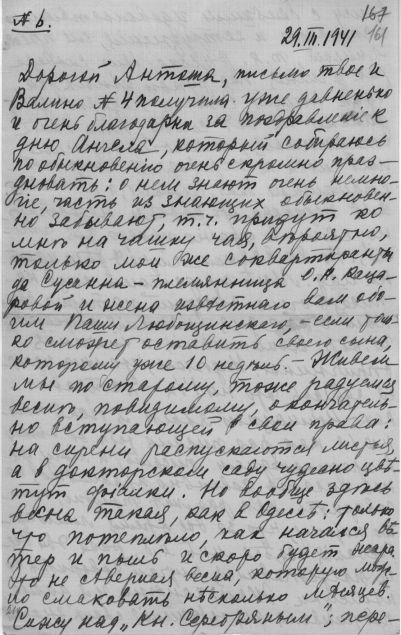 № 6.
167
161
29.III.1941
Дорогой Антоша, письмо твое и
Валино № 4 получила уже давненько
и очень благодарна за поздравление к
дню Ангела, который собираюсь
по обыкновению очень скромно праз-
дновать: о нем знают очень немно-
гие, часть из знающих обыкновен-
но забывают, т.ч. придут ко
мне на чашку чая, вероятно,
только мои же соквартиранты
да Сусанна – племянница О.А. Каца-
ровой и жена известнаго вам обо-
им Паши Любощинского, – если толь-
ко сможет оставить своего сына,
которому уже 10 недель. – Живем
мы по старому, тоже радуемся
весне, повидимому, окончатель-
но вступающей в свои права:
на сирени распускаются листья,
а в докторском саду чудесно цвѣ-
тут фіалки. Но вообще здѣсь
весна такая, как в Одессѣ: только
что потеплѣло, как начался вѣ-
тер и пыль и скоро будет жара.
Это не сѣверная весна, которую мож-
но смаковать нѣсколько мѣсяцев.
Сижу над „Кн. Серебряным"; пере-